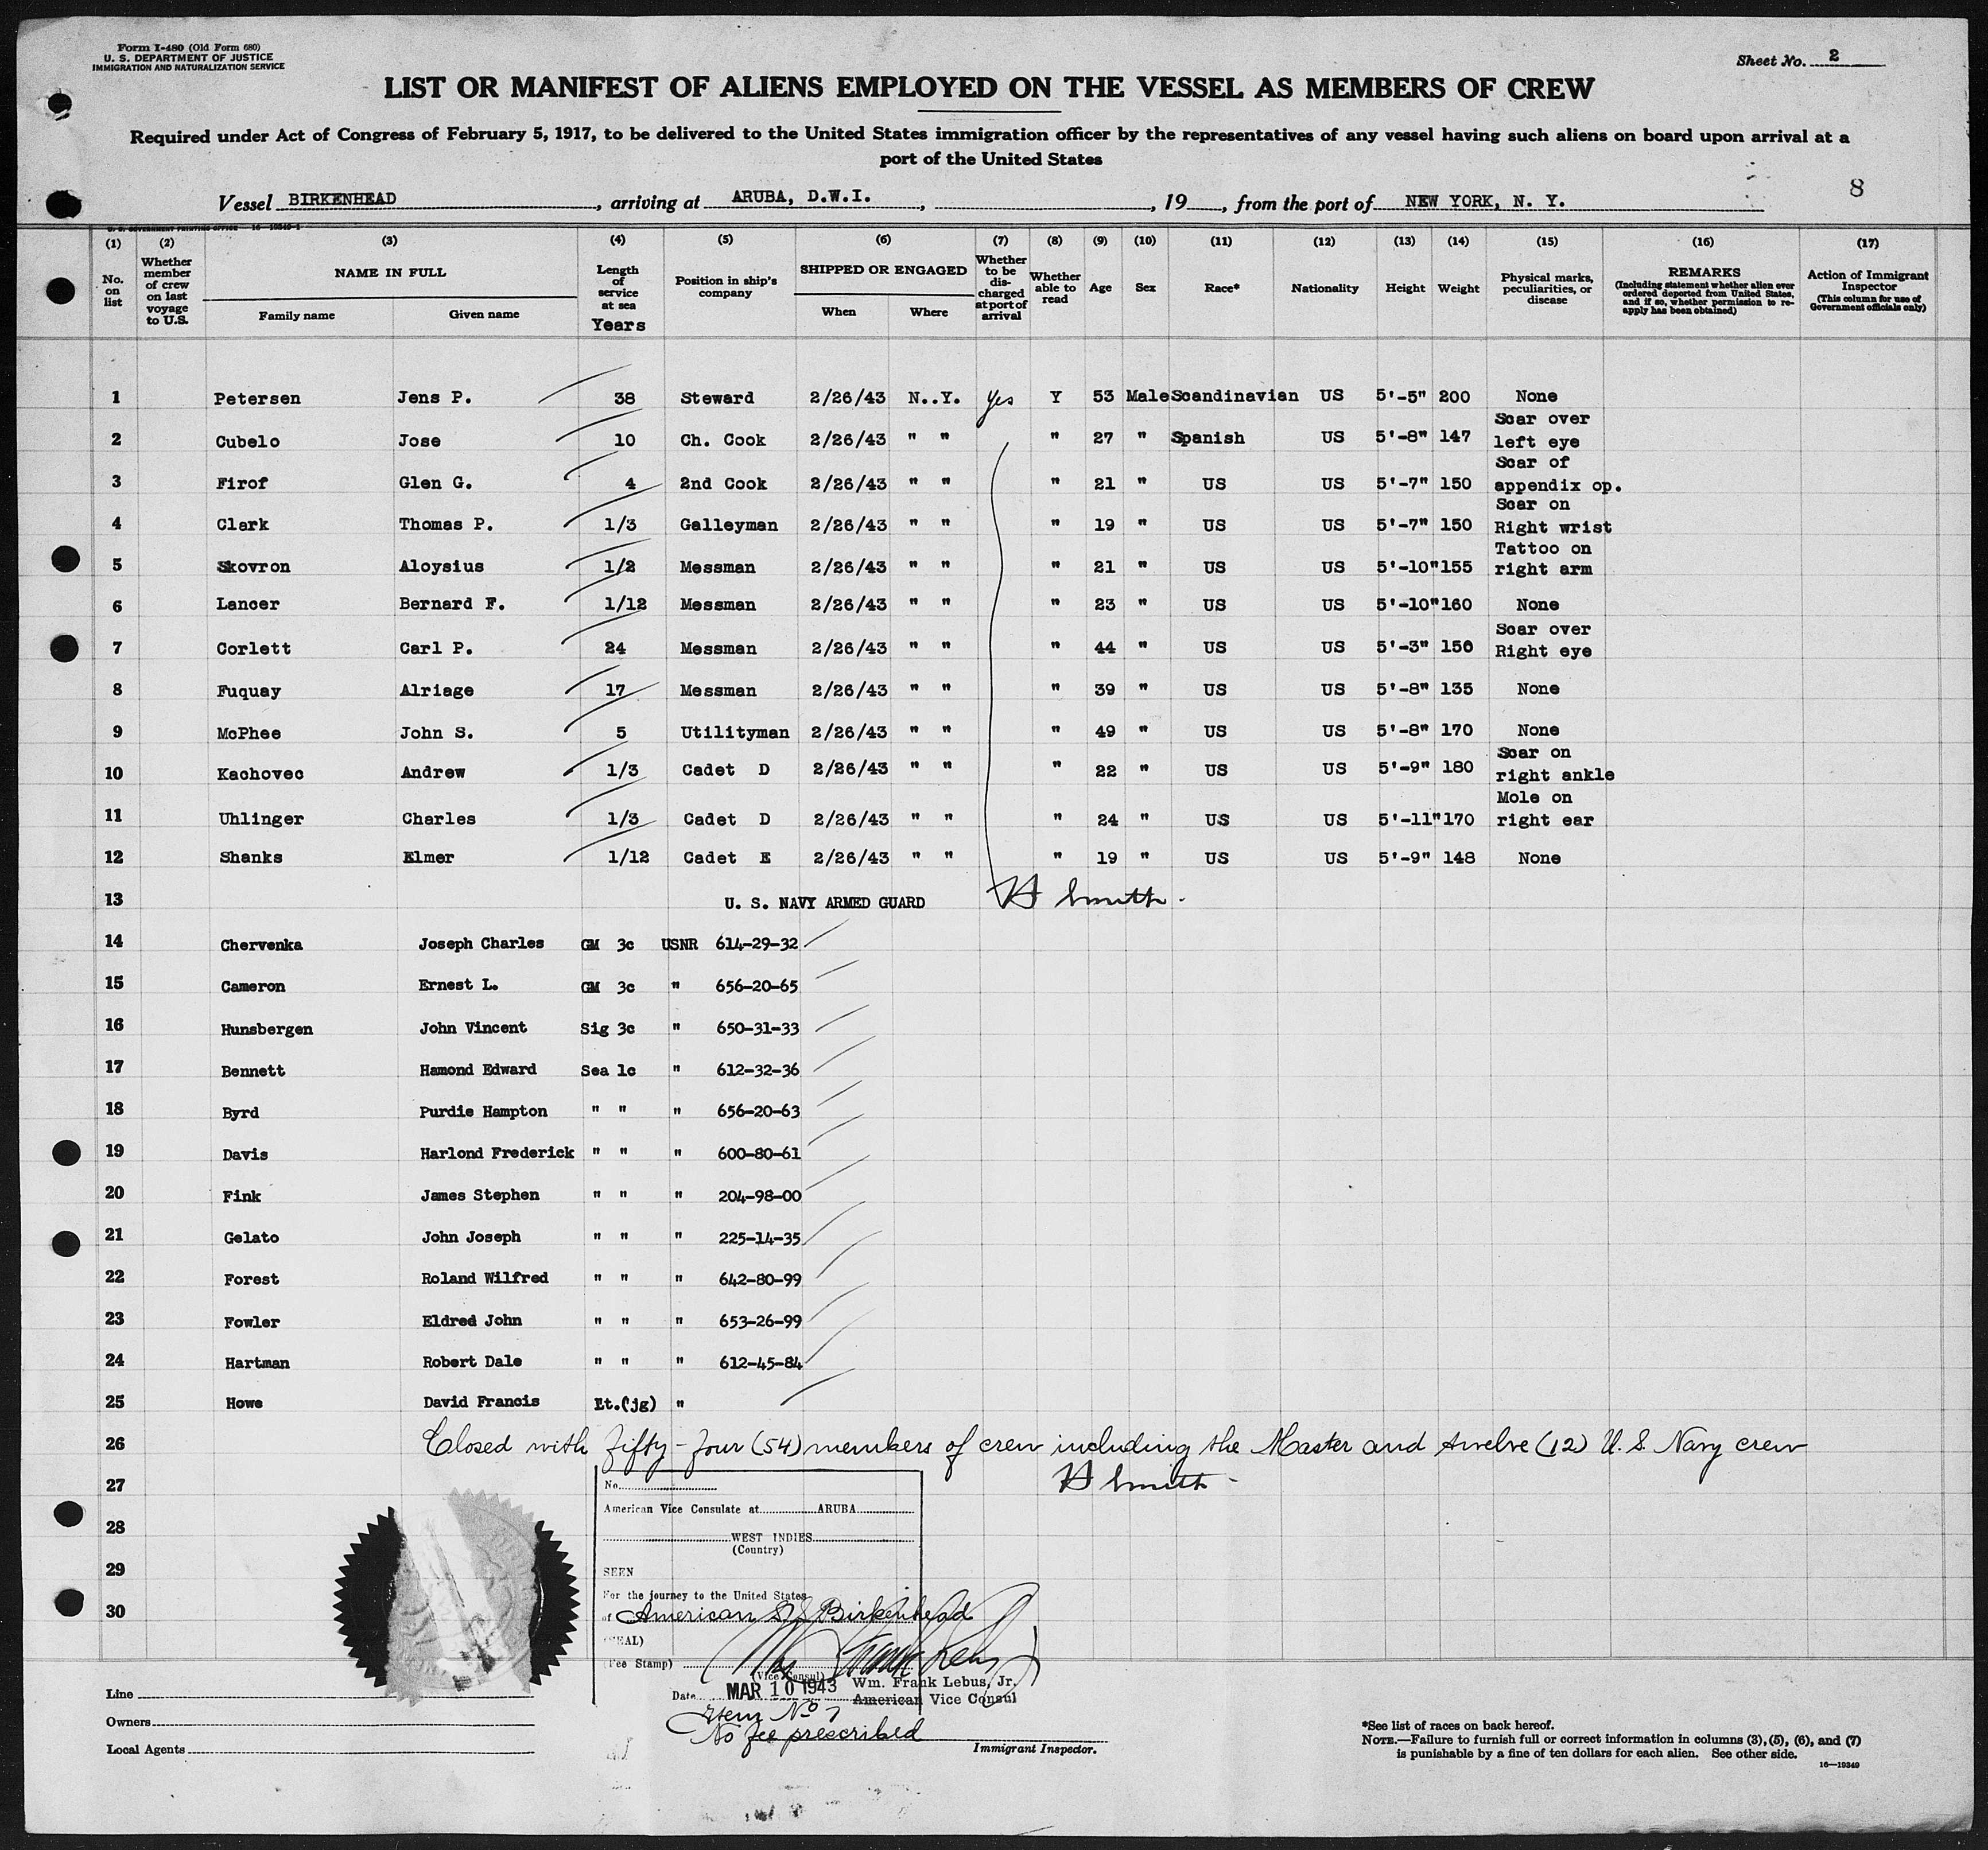 Form I-480 (Old Form 680)
U. S. DEPARTMENT OF JUSTICE
IMMIGRATION AND NATURALIZATION SERVICE
Sheet No. 2
LIST OR MANIFEST OF ALIENS EMPLOYED ON THE VESSEL AS MEMBERS OF CREW
Required under Act of Congress of February 5, 1917, to be delivered to the United States immigration officer by the representatives of any vessel having such aliens on board upon arrival at a
port of the United States
8
Vessel BIRKENHEAD, arriving at ARUBA, D.W.I., , 19 , from the port of NEW YORK, N. Y.
U. S. GOVERNMENT PRINTING OFFICE 16—19349-1
(1) (2) (3) (4) (5) (6) (7) (8) (9) (10) (11) (12) (13) (14) (15) (16) (17)
No. on list
Whether member of crew on last voyage to U.S.
NAME IN FULL
Family name Given name
Length of service at sea
Years
Position in ship's company
SHIPPED OR ENGAGED
When Where
Whether to be discharged at port of arrival
Whether able to read
Age
Sex
Race*
Nationality
Height
Weight
Physical marks, peculiarities, or disease
REMARKS
(Including statement whether alien ever ordered deported from United States, and if so, whether permission to reapply has been obtained)
Action of Immigrant Inspector
(This column for use of Government officials only)
1 Petersen Jens P. 38 Steward 2/26/43 N..Y. yes Y 53 Male Scandinavian US 5'-5" 200 None
2 Cubelo Jose 10 Ch. Cook 2/26/43 " " " 27 " Spanish US 5'-8" 147 Scar over left eye
3 Firof Glen G. 4 2nd Cook 2/26/43 " " " 21 " US US 5'-7" 150 Scar of appendix op.
4 Clark Thomas P. 1/3 Galleyman 2/26/43 " " " 19 " US US 5'-7" 150 Scar on Right wrist
5 Skovron Aloysius 1/2 Messman 2/26/43 " " " 21 " US US 5'-10" 155 Tattoo on right arm
6 Lancer Bernard F. 1/12 Messman 2/26/43 " " " 23 " US US 5'-10" 160 None
7 Corlett Carl P. 24 Messman 2/26/43 " " " 44 " US US 5'-3" 156 Scar over Right eye
8 Fuquay Alriage 17 Messman 2/26/43 " " " 39 " US US 5'-8" 135 None
9 McPhee John S. 5 Utilityman 2/26/43 " " " 49 " US US 5'-8" 170 None
10 Kachovec Andrew 1/3 Cadet D 2/26/43 " " " 22 " US US 5'-9" 180 Scar on right ankle
11 Uhlinger Charles 1/3 Cadet D 2/26/43 " " " 24 " US US 5'-11" 170 Mole on right ear
12 Shanks Elmer 1/12 Cadet E 2/26/43 " " " 19 " US US 5'-9" 148 None
13 U. S. NAVY ARMED GUARD H Smith
14 Chervenka Joseph Charles GM 3c USNR 614-29-32
15 Cameron Ernest L. GM 3c " 656-20-65
16 Hunsbergen John Vincent Sig 3c " 650-31-33
17 Bennett Hamond Edward Sea 1c " 612-32-36
18 Byrd Purdie Hampton " " " 656-20-63
19 Davis Harlond Frederick " " " 600-80-61
20 Fink James Stephen " " " 204-98-00
21 Gelato John Joseph " " " 225-14-35
22 Forest Roland Wilfred " " " 642-80-99
23 Fowler Eldred John " " " 653-26-99
24 Hartman Robert Dale " " " 612-45-84
25 Howe David Francis Lt.(jg) "
26 Closed with fifty-four (54) members of crew including the Master and twelve (12) U.S. Navy crew
27 H Smith
28
29
30
No.
American Vice Consulate at ARUBA
WEST INDIES
(Country)
SEEN
For the journey to the United States
of American SS Birkenhead
(SEAL)
(Fee Stamp)
(Vice Consul)
Wm. Frank Lebus, Jr.
Date MAR 10 1943 American Vice Consul
Item No 7
No fee prescribed
Line
Owners
Local Agents
Immigrant Inspector.
*See list of races on back hereof.
NOTE.—Failure to furnish full or correct information in columns (3), (5), (6), and (7)
is punishable by a fine of ten dollars for each alien. See other side.
16—19349